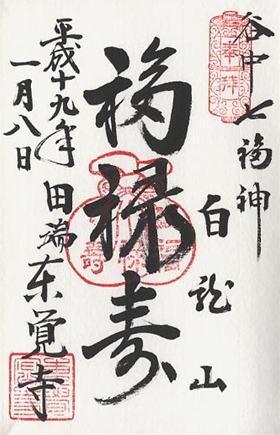 谷中七福神
白龍山
福禄寿
平成十九年
一月八日
田端東覚寺